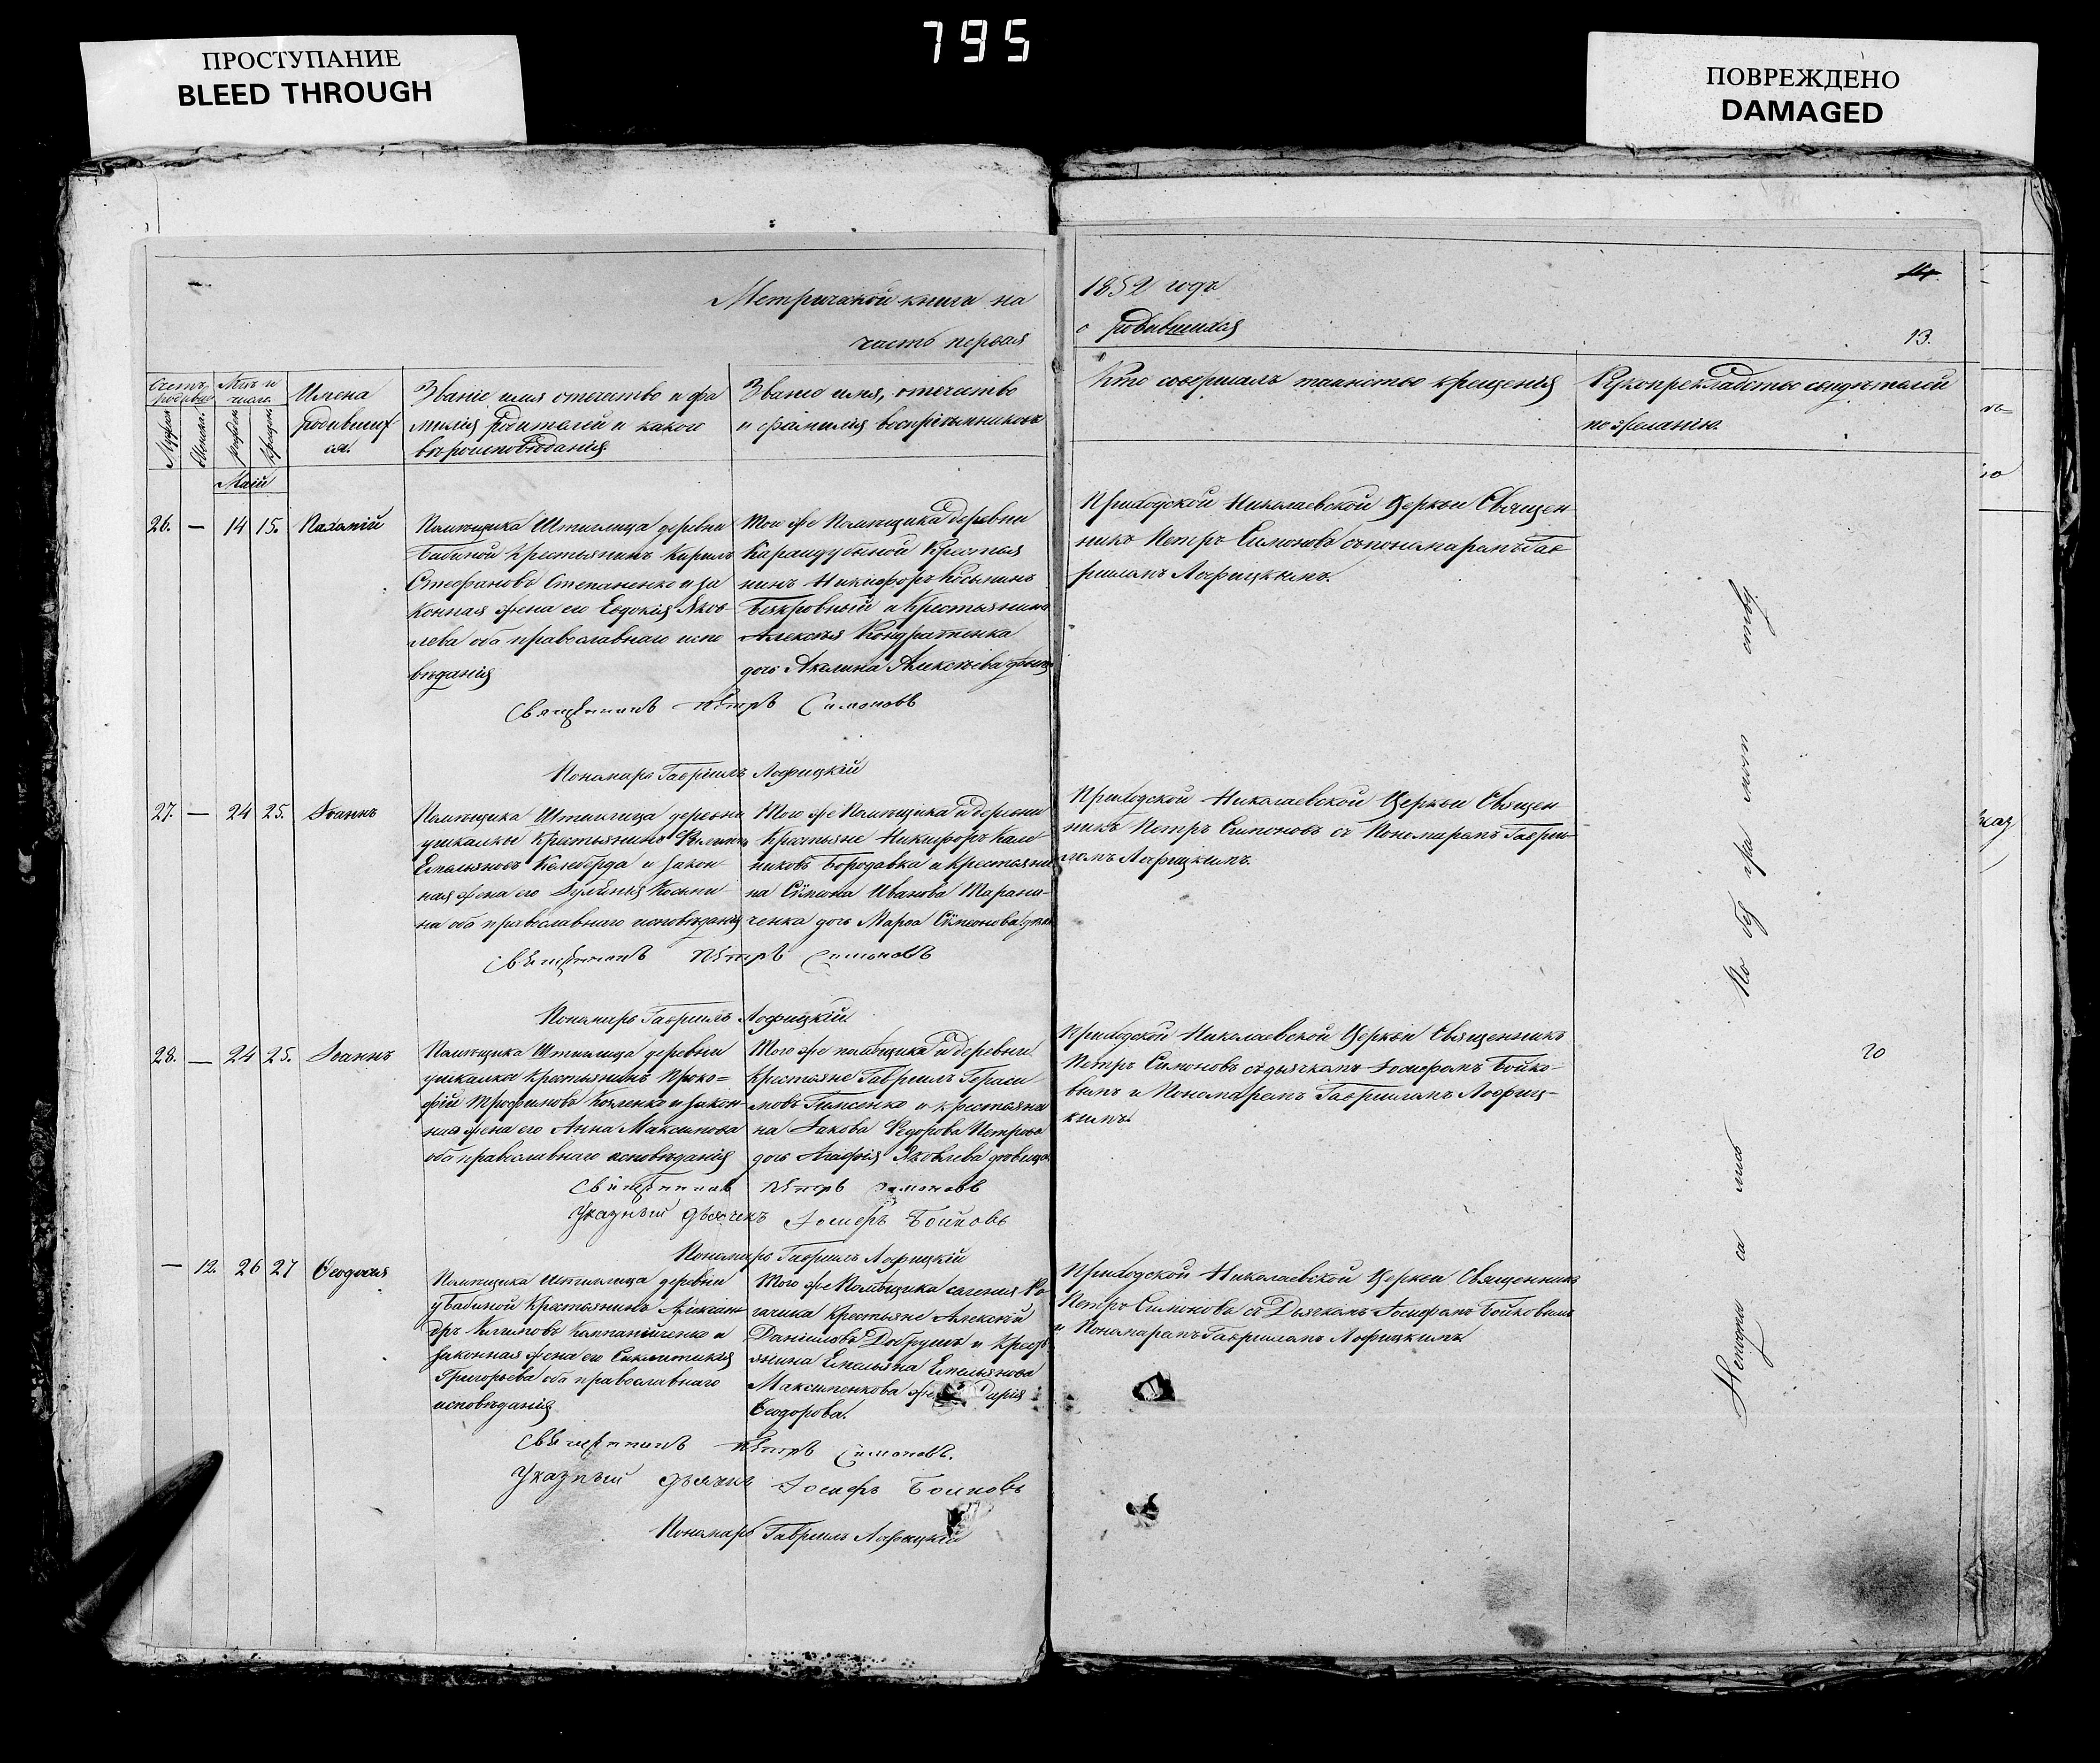 795
ПРОСТУПАНИЕ
BLEED THROUGH
ПОВРЕЖДЕНО
DAMAGED
Метрической книги на
часть первая
1852 годъ
о родившихся
14.
13.
Счетъ родивш
Мцъ и число.
Мужск
Женск.
рожден
крещен.
Имена
родивших
ся.
Званіе имя отечитво и фа
милія родителей и какого
вѣроисповѣданія
Званіе имя, отечитво
и фамилія воспріемниковъ
Кто совершалъ таинство крещенія
Рукоприкладство свидѣтелей
по желанію.
Маій
26. — 14 15. Пахомій
Помѣщика Штиглица деревни
Бабиной Крестьянинъ Кирилъ
Стефановъ Степаненко и за
конная жена его Евдокія Яков
лева оба православнаго испо
вѣданія
Того же Помѣщика деревни
Карайдубиной Крестья
нинъ Никифоръ Косьминъ
Безкровный и Крестьянина
Алексѣя Кондратенка
дочь Акилина Алексѣева
Приходской Николаевской Церкви Священ
никъ Петръ Симоновъ съ пономаремъ Гав
риломъ Лофицкимъ.
Священникъ Петръ Симоновъ
Пономарь Гавріилъ Лофицкій
27. — 24 25. Іоаннъ
Помѣщика Штиглица деревни
ушкалки Крестьянинъ
Емельяновъ Келеберда и закон
ная жена его Косьми
на оба православнаго исповѣданія
Того же Помѣщика и деревни
Крестьяне Никифоръ
Бородавка и Крестьяни
на Сѵмеона Иванова Тарани
ченка дочь Марѳа Сѵмеонова
Приходской Николаевской Церкви Священ
никъ Петръ Симоновъ съ Пономаремъ Гаври
ломъ Лофицкимъ.
Священникъ Петръ Симоновъ
Пономарь Гавріилъ Лофицкій.
28. — 24 25. Іоаннъ
Помѣщика Штиглица деревни
ушкалки Крестьянинъ Проко=
фій Трофимовъ и закон
ная жена его Анна Максимова
оба православнаго исповѣданія
Того же помѣщика и деревни
Крестьяне Гавріилъ Гераси
мовъ и крестьяни
на Іакова Ѳедорова
дочь Агафія Яковлева девица
Приходской Николаевской Церкви Священникъ
Петръ Симоновъ съ дьячкомъ Іосифомъ Бойко
вымъ и Пономаремъ Гавриломъ Лофиц
кимъ.
20
Священникъ Петръ Симоновъ
Указный дьячекъ Іосифъ Бойковъ
Пономарь Гавріилъ Лофицкій
— 12. 26 27 Ѳеодосія
Помѣщика Штиглица деревни
у Бабиной Крестьянинъ Алексан
дръ Климовъ и
законная жена его Синклитикія
Григорьева оба православнаго
исповѣданія
Того же Помѣщика селенія Ро
гачика Крестьяне Алексѣй
Даниловъ и Крест
янина Емельяна Емельянова
Максименкова Дарія
Ѳеодорова.
Приходской Николаевской Церкви Священникъ
Петръ Симоновъ съ Дьячкомъ Іосифомъ Бойковымъ
и Пономаремъ Гавриломъ Лофицкимъ
Священникъ Петръ Симоновъ.
Указный дьячекъ Іосифъ Бойковъ
Пономарь Гавріилъ Лофицкій